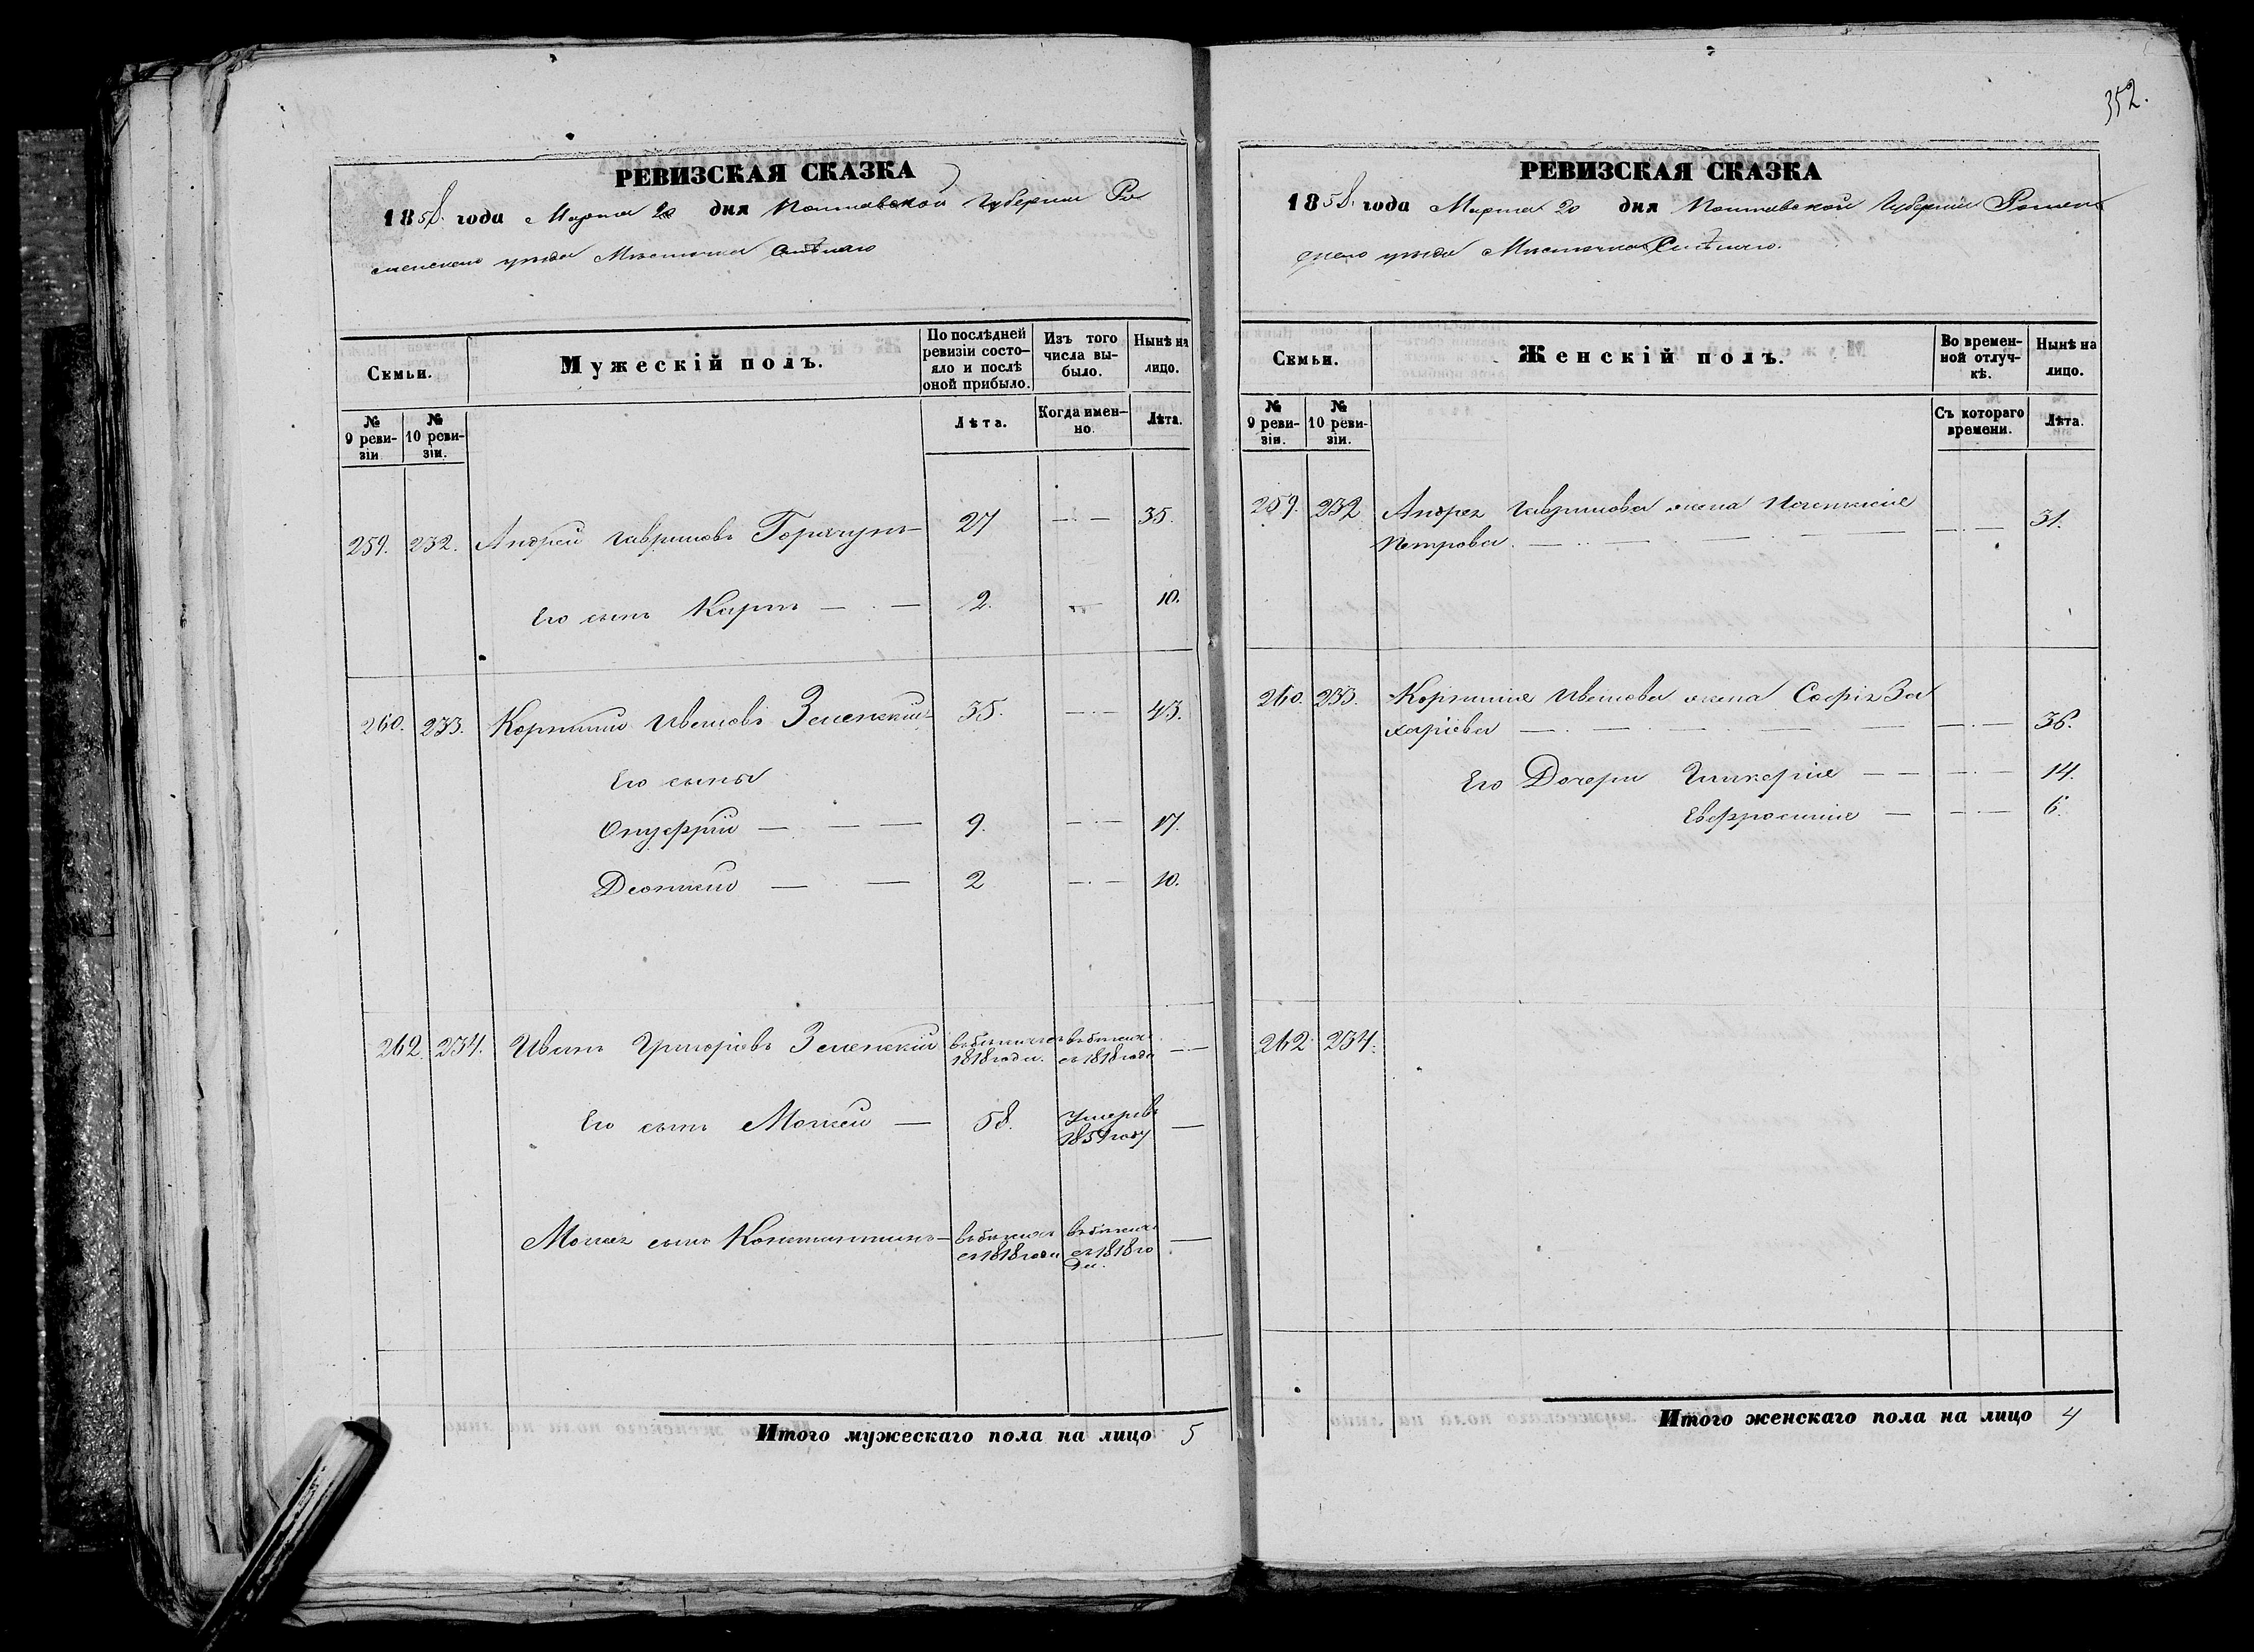 352.
РЕВИЗСКАЯ СКАЗКА
1858. года Марта 20 дня Полтавской Губернии Ро
менскаго уѣзда Мѣстечка Смѣлаго
Семьи.
Мужескій полъ.
По послѣдней ревизіи состо-яло и послѣ оной прибыло.
Изъ того числа вы-было.
Нынѣ на лицо.
№ 9 реви-зіи
№ 10 реви-зіи.
Лѣта.
Когда имен-но
Лѣта.
259. 232. Андрей Гавриловъ Горячунъ 27 — 35.
Его сынъ Карпъ — 2. — 10.
260. 233. Корнилій Ивановъ Зеленскій 35. — 43.
Его сыны
Онуфрій — 9. — 17.
Леонтій — 2 — 10.
262. 234. Иванъ Григорьевъ Зеленскій въ бѣгахъ съ 1818 года. въ бѣгахъ съ 1818 года —
Его сынъ Мойсей — 58. Умеръ въ 1851 году —
Мойсея сынъ Константинъ — въ бѣгахъ съ 1818 года въ бѣгахъ съ 1818 го
да. —
Итого мужескаго пола на лицо 5
РЕВИЗСКАЯ СКАЗКА
1858. года Марта 20 дня Полтавской Губерніи Ромен
скаго уѣзда Мѣстечка Смѣлаго.
Семьи.
Женскій полъ.
Во времен-ной отлуч-кѣ.
Нынѣ на лицо.
№ 9 реви-зіи.
№ 10 реви-зіи.
Съ котораго времени.
Лѣта.
259. 232 Андрея Гаврилова жена
Петрова. — 31.
260. 233. Корнилія Иванова жена Софія За
харіева — 36.
Его Дочери Гликерія — 14.
Евфросинія — 6.
262. 234.
Итого женскаго пола на лицо 4